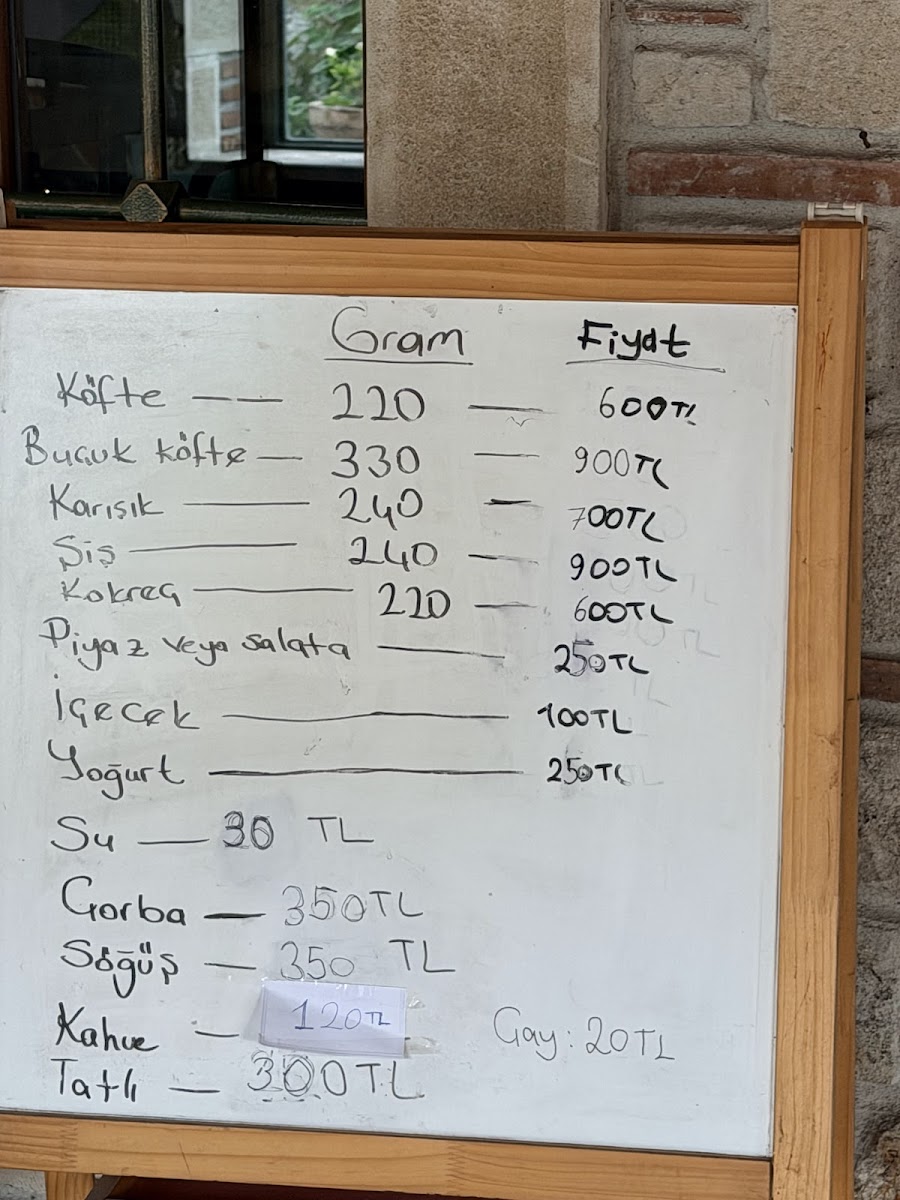 Gram Fiyat
Köfte —— 220 — 600TL
Buçuk köfte — 330 — 900TL
Karışık — 240 — 700TL
Şiş — 240 — 900TL
Kokreç — 220 — 600TL
Piyaz veya salata — 250TL
İçecek — 100TL
Yoğurt — 250TL
Su — 30 TL
Çorba — 350TL
Söğüş — 350 TL
Kahve — 120TL Çay: 20TL
Tatlı — 300TL